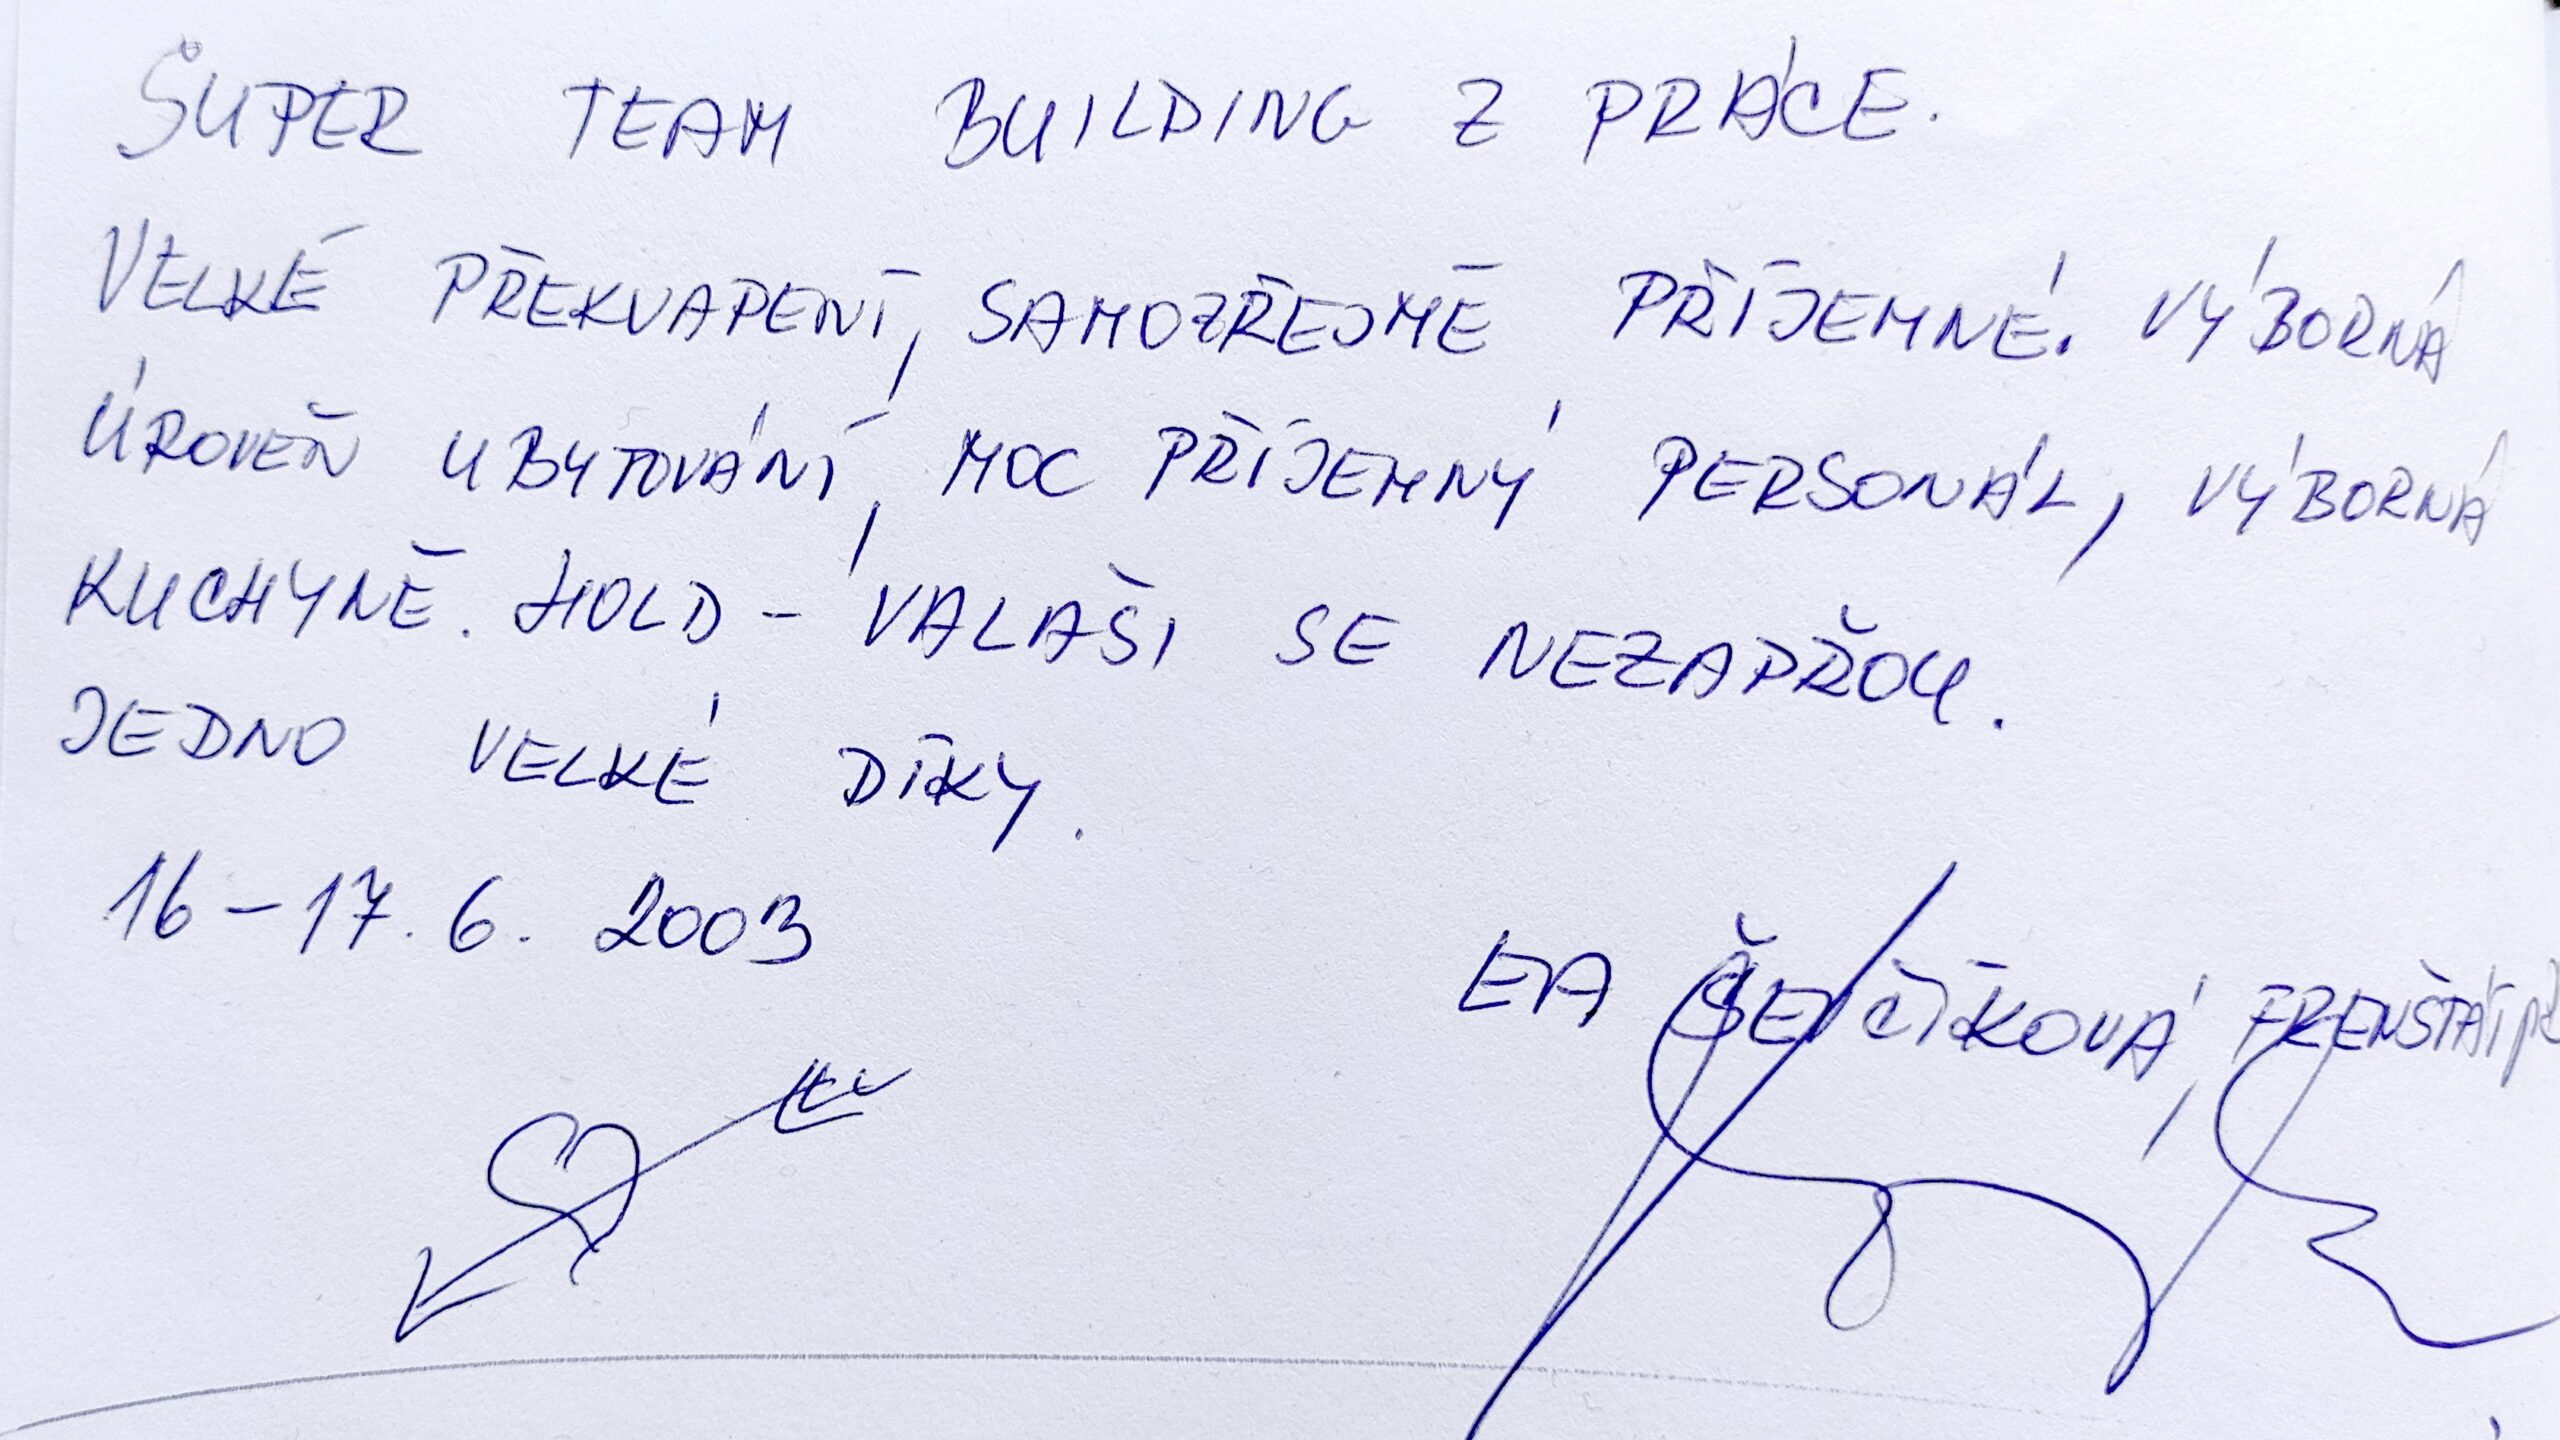 SUPER TEAM BUILDING Z PRÁCE.
VELKÉ PŘEKVAPENÍ, SAMOZŘEJMĚ PŘÍJEMNÉ. VÝBORNÁ
ÚROVEŇ UBYTOVÁNÍ, MOC PŘÍJEMNÝ PERSONÁL, VÝBORNÁ
KUCHYNĚ. HOLD - VALAŠI SE NEZAPŘOU.
JEDNO VELKÉ DÍKY.
16-17. 6. 2003
ŠEVČÍKOVÁ, FRENŠTÁT